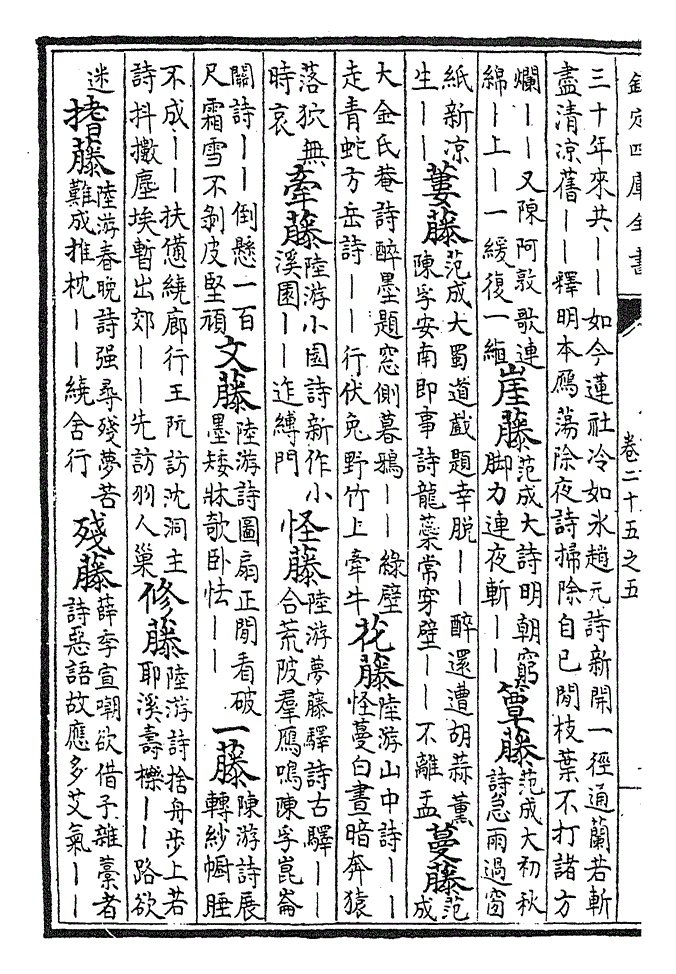 欽定四庫全書 卷二十五之五
三十年來共――如今蓮社冷如氷趙元詩新開一徑通蘭若斬盡清凉舊――釋明本鴈蕩除夜詩掃除自已閒枝葉不打諸方
爛――又陳阿敦歌連綿――上―一緩復一緪 崖藤 范成大詩明朝窮脚力連夜斬―― 簟藤 范成大初秋詩急雨過窗
紙新凉生―― 蔞藤 范成大蜀道戲題幸脱――醉還遭胡蒜薰陳孚安南即事詩龍蘂常穿壁――不離盂 蔓藤 范成
大金氏菴詩醉墨題窓側暮鴉――緣壁走青蛇方岳詩――行伏兔野竹上牽牛 花藤 陸游山中詩――怪蔓白晝暗奔猿
落狖無時哀 牽藤 陸游小園詩新作小溪園――迮縛門 怪藤 陸游夢藤驛詩古驛――合荒陂羣鴈鳴陳孚崑崙
關詩――倒懸一百尺霜雪不剥皮堅頑 文藤 陸游詩圖扇正閒看破墨矮牀欹卧怯―― 一藤 陳游詩展轉紗㡡睡
不成――扶憊繞廊行王阮訪沈洞主詩抖擻塵埃暫出郊――先訪羽人巢 修藤 陸游詩捨舟步上若耶溪壽櫟――路欲
迷 搘藤 陸游春晚詩强尋殘夢苦難成推枕――繞舍行 殘藤 薛季宣嘲欲借予雜藁者詩惡語故應多艾氣――